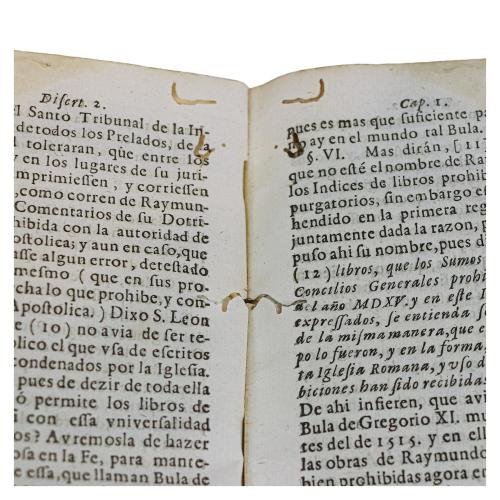 Disert. 2.
l Santo Tribunal de la In-
de todos los Prelados, de la
toleraran, que entre los
y en los lugares de su juri-
mprimiessen, y corriessen
, como corren de Raymun-
Comentarios de su Dotri-
hibida con la autoridad de
ostolica; y aun en caso, que
sse algun error, detestado
mesmo ( que en sus pro-
cha lo que prohibe, y con-
Apostolica. ) Dixo S. Leon
e (10) no avia de ser te-
lico el que vsa de escritos
condenados por la Iglesia.
pues de dezir de toda ella
ó permite los libros de
i con essa vniversalidad
os? Avremosla de hazer
osa en la Fe, para mante-
e essa, que llaman Bula de
Cap. 1.
pues es mas que suficiente pa
no ay en el mundo tal Bula.
§. VI. Mas dirán, [11]
que no esté el nombre de Ra
los Indices de libros prohib
purgatorios, sin embargo es
hendido en la primera reg
juntamente dada la razon, p
puso ahi su nombre, pues di
(12) libros, que los Sumos
Concilios Generales prohi
el año MDXV. y en este I
expressados, se entienda s
de la misma manera, que e
po lo fueron, y en la forma,
ta Iglesia Romana, y vso d
biciones han sido recibidas
De ahi infieren, que avi
Bula de Gregorio XI. mu
tes del de 1515. y en ell
las obras de Raymundo
bien prohibidas agora en